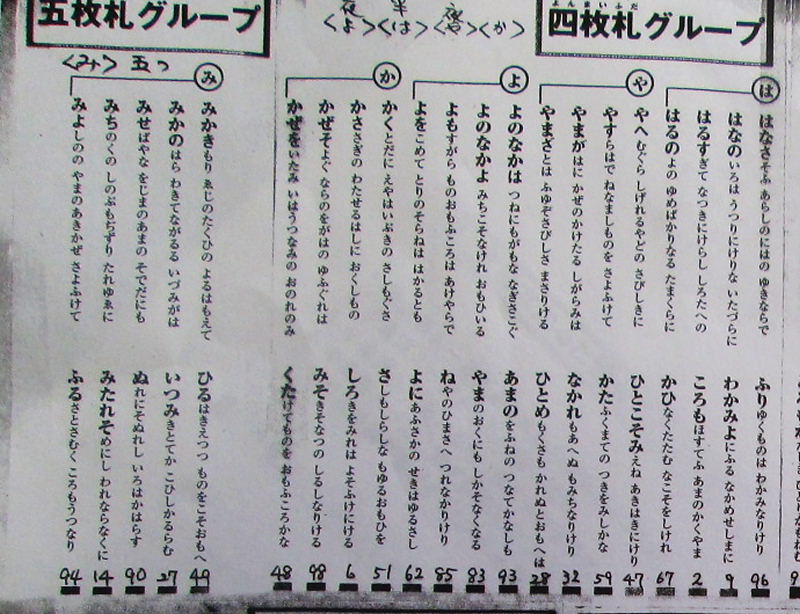 よんまいふだ
四枚札グループ
夜 半
<よ><は><か>
は
はなさそふ あらしのにはの ゆきならで
ふりゆくものは わかみなりけり 96
はなのいろは うつりにけりな いたづらに
わかみよにふる なかめせしまに 9
はるすぎて なつきにけらし しろたへの
ころもほすてふ あまのかくやま 2
はるのよの ゆめばかりなる たまくらに
かひなくたたむ なこそをしけれ 67
や
やへむぐら しげれるやどの さびしきに
ひとこそみえね あきはきにけり 47
やすらはで ねなましものを さよふけて
かたふくまての つきをみしかな 59
やまがはに かぜのかけたる しがらみは
なかれもあへぬ もみちなりけり 32
やまざとは ふゆぞさびしさ まさりける
ひとめもくさも かれぬとおもへは 28
よ
よのなかは つねにもがもな なぎさこぐ
あまのをふねの つなてかなしも 93
よのなかよ みちこそなけれ おもひいる
やまのおくにも しかそなくなる 83
よもすがら ものおもふころは あけやらで
ねやのひまさへ つれなかりけり 85
よをこめて とりのそらねは はかるとも
よにあふさかの せきはゆるさし 62
か
かくとだに えやはいぶきの さしもぐさ
さしもしらしな もゆるおもひを 51
かささぎの わたせるはしに おくしもの
しろきをみれは よそふけにける 6
かぜそよぐ ならのをがはの ゆふぐれは
みそきそなつの しるしなりける 98
かぜをいたみ いはうつなみの おのれのみ
くたけてものを おもふころかな 48
五枚札グループ
<み> 五つ
み
みかきもり ゑじのたくひの よるはもえて
ひるはきえつつ ものをこそおもへ 49
みかのはら わきてながるる いづみがは
いつみきとてか こひしかるらむ 27
みせばやな をじまのあまの そでだにも
ぬれにそぬれし いろはかはらす 90
みちのくの しのぶもぢずり たれゆゑに
みたれそめにし われならなくに 14
みよしのの やまのあきかぜ さよふけて
ふるさとさむく ころもうつなり 94